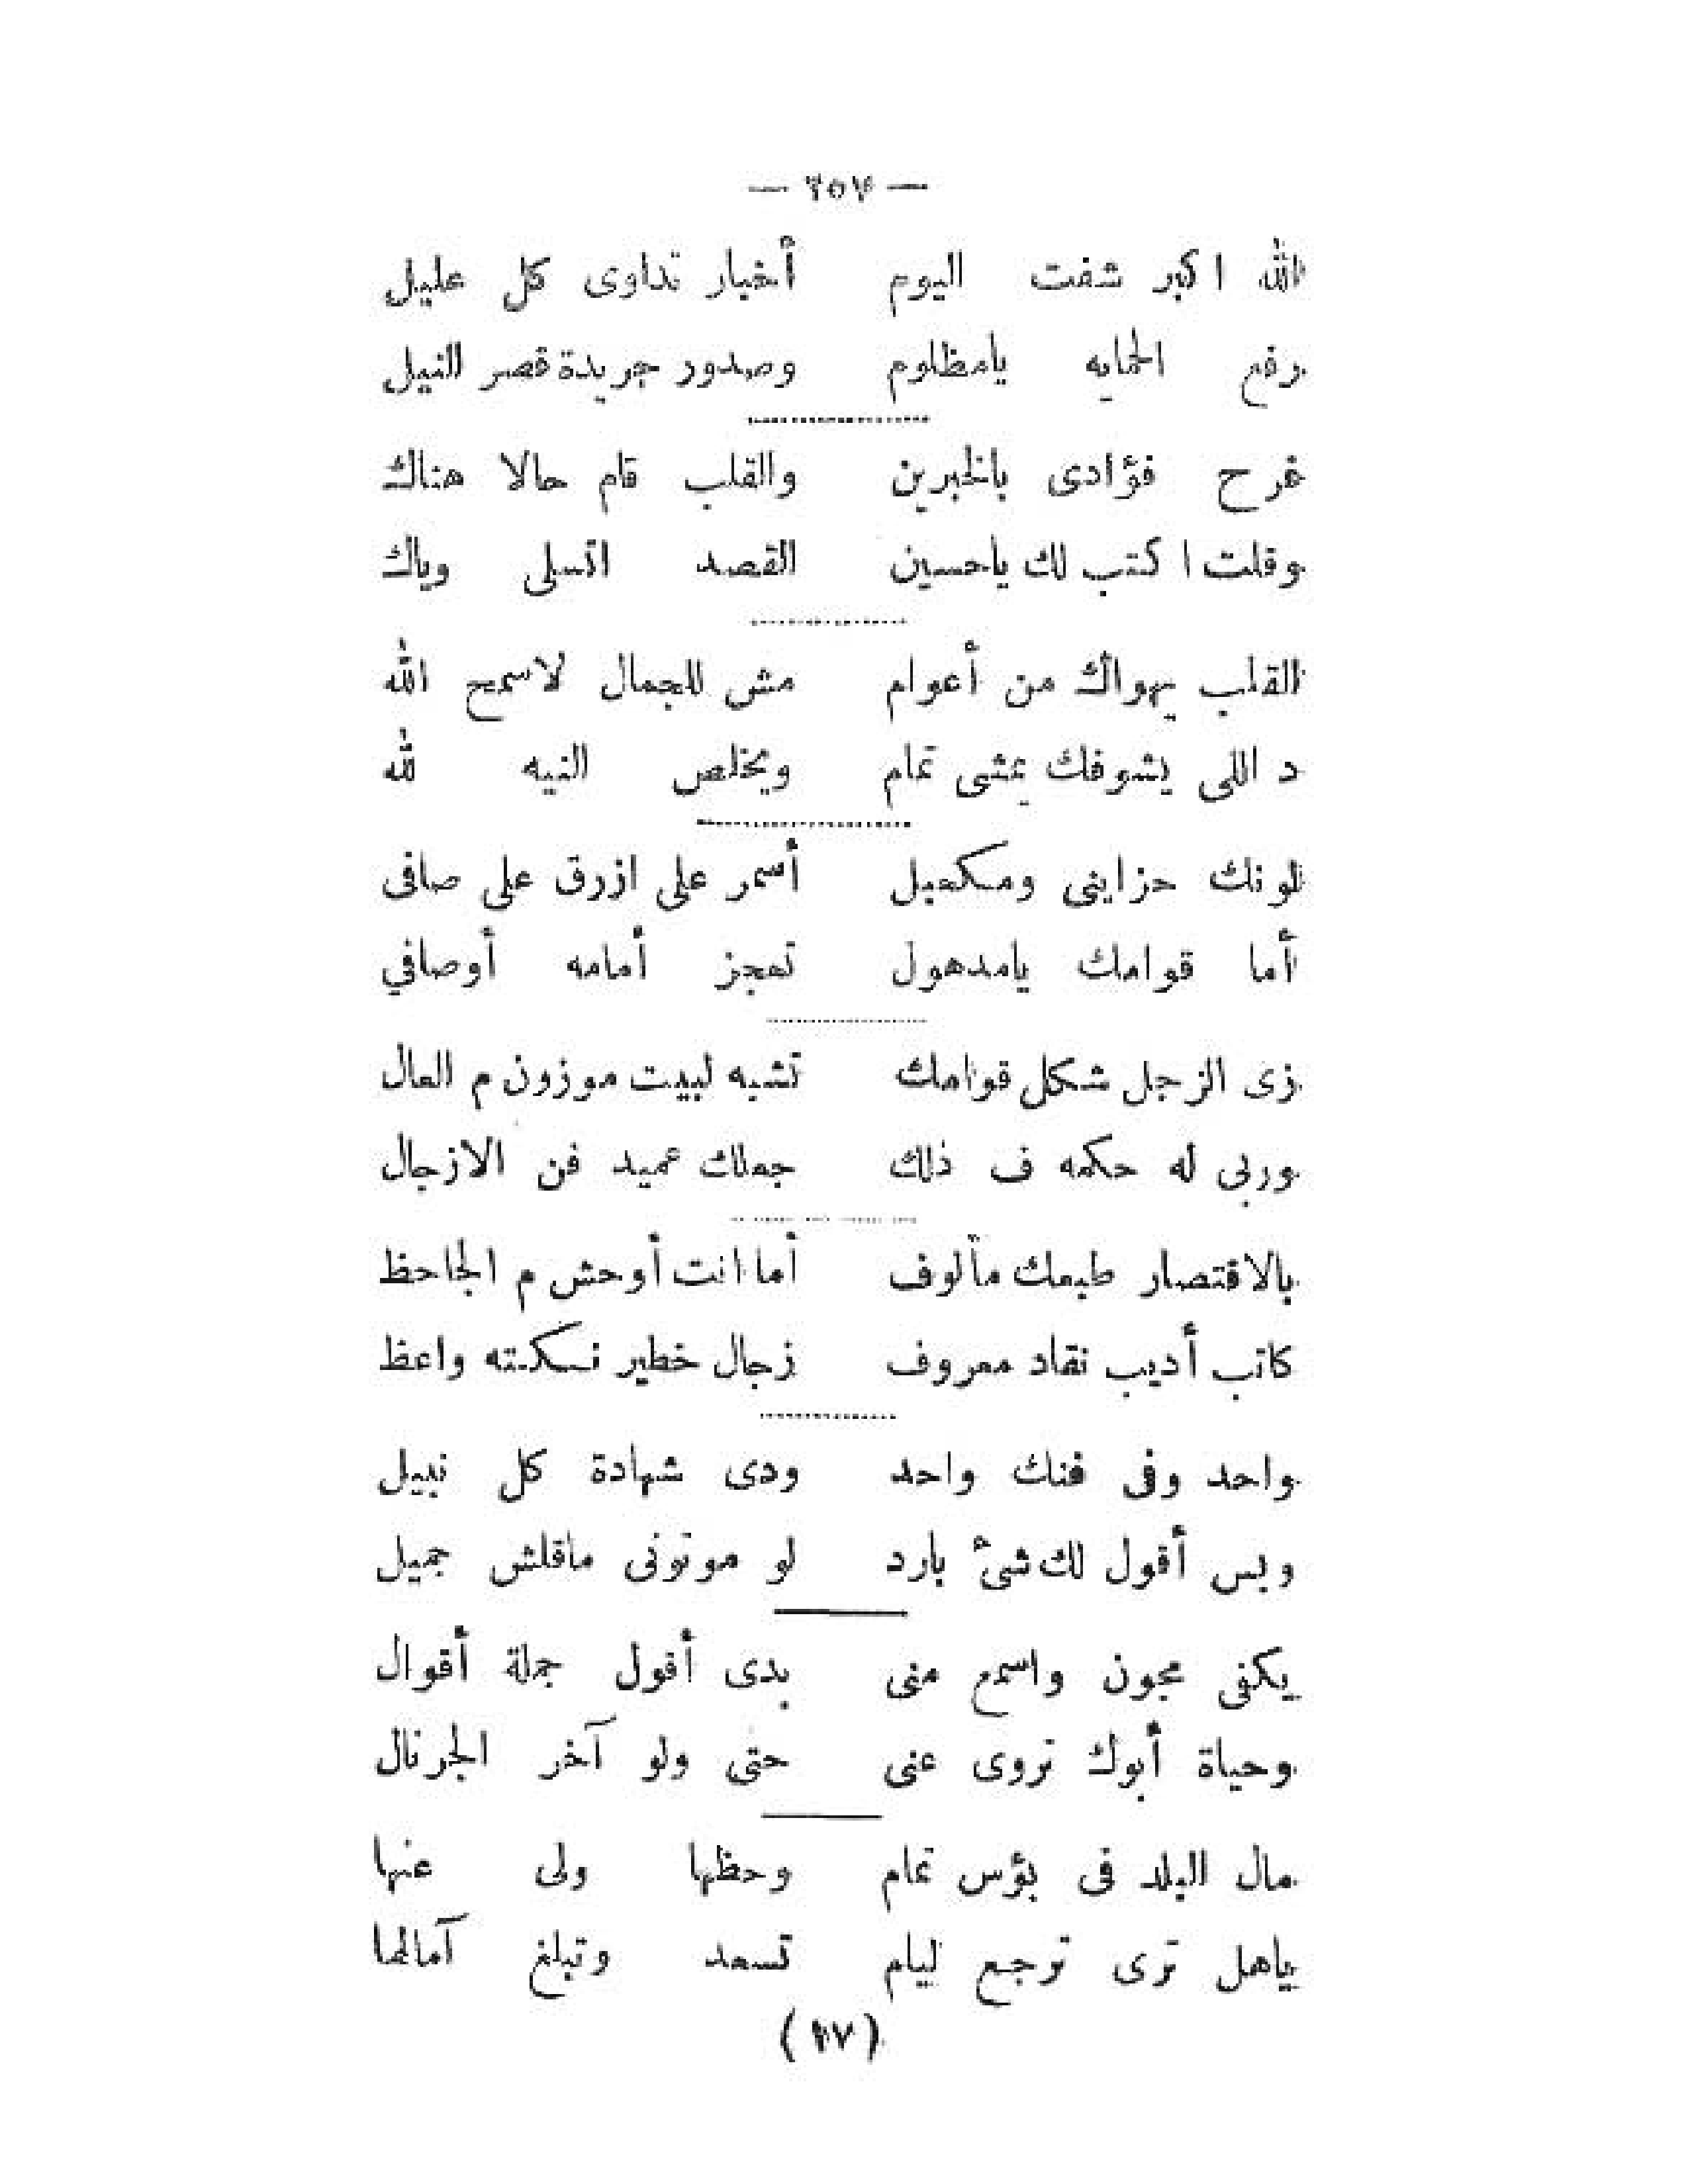 — ٢٥٧ —
الله اكبر شفت اليوم أخبار تداوى كل عليل
رفع الحمايه يامظلوم وصدور جريدة قصر النيل
فرح فؤادى بالخبرين والقلب قام حالا هناك
وقلت اكتب لك ياحسين القصد اتسلى وياك
القلب يهواك من أعوام مش للجمال لاسمح الله
د اللى يشوفك يمشى تمام ويخلص النيه لله
لونك حزاينى ومكحيل أسمر على ازرق على صافى
أما قوامك يامدهول تعجز أمامه أوصافي
زى الزجل شكل قوامك تشبه لبيت موزون م العال
وربى له حكمه ف ذلك جعلك عميد فن الازجال
بالاقتصار طبعك مألوف أما انت أوحش م الجاحظ
كاتب أديب نقاد معروف زجال خطير نكته واعظ
واحد وفى فنك واحد ودى شهادة كل نبيل
وبس أقول لك شئ بارد لو موتونى ماقلش جميل
يكفى مجون واسمع منى بدى أقول جملة أقوال
وحياة أبوك تروى عنى حتى ولو آخر الجرنال
مال البلد فى بؤس تمام وحظها ولى عنها
ياهل ترى ترجع ليام تسعد وتبلغ آمالها
(١٧)